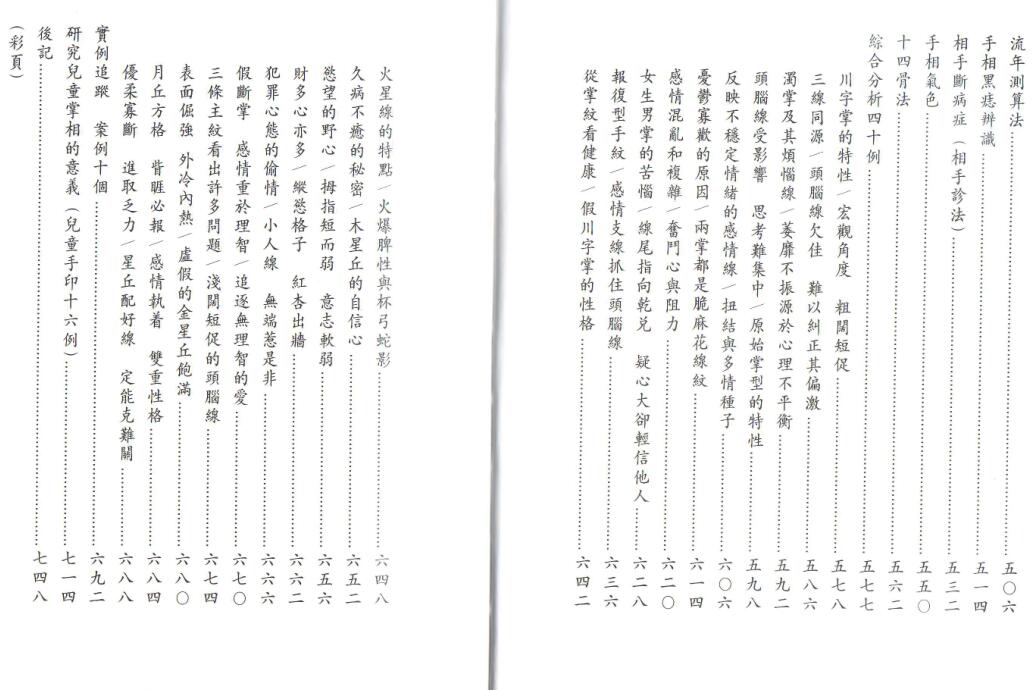 流年測算法……五〇六
手相黑痣辨識……五一四
相手斷病症（相手診法）……五三二
手相氣色……五五〇
十四骨法……五六二
綜合分析四十例……五七七
川字掌的特性／宏觀角度　粗闊短促……五七八
三線同源／頭腦線欠佳　難以糾正其偏激……五八六
濁掌及其煩惱線／萎靡不振源於心理不平衡……五九二
頭腦線受影響　思考難集中／原始掌型的特性……五九八
反映不穩定情緒的感情線／扭結與多情種子……六〇六
憂鬱寡歡的原因／兩掌都是脆麻花線紋……六一四
感情混亂和複雜／奮鬥心與阻力……六二〇
女生男掌的苦惱／線尾指向乾兌　疑心大卻輕信他人……六二八
報復型手紋／感情支線抓住頭腦線……六三六
從掌紋看健康／假川字掌的性格……六四二
火星線的特點／火爆脾性與杯弓蛇影……六四八
久病不癒的秘密／木星丘的自信心……六五二
慾望的野心／拇指短而弱　意志軟弱……六五六
財多心亦多／縱慾格子　紅杏出牆……六六二
犯罪心態的偷情／小人線　無端惹是非……六六六
假斷掌　感情重於理智／追逐無理智的愛……六七〇
三條主紋看出許多問題／淺闊短促的頭腦線……六七四
表面倔強　外冷內熱／虛假的金星丘飽滿……六八〇
月丘方格　眥睚必報／感情執着　雙重性格……六八四
優柔寡斷　進取乏力／星丘配好線　定能克難關……六八八
實例追蹤　案例十個……六九二
研究兒童掌相的意義（兒童手印十六例）……七一四
後記……七四八
（彩頁）